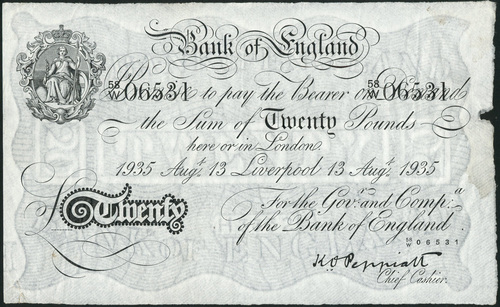 Bank of England
58/W 06531 58/W 06531
Promise to pay the Bearer on Demand
the Sum of Twenty Pounds
here or in London
1935 Augt. 13 Liverpool 13 Augt. 1935
For the Govr. and Compa.
£Twenty of the Bank of England.
58/W 06531
K.O. Peppiatt
Chief Cashier.